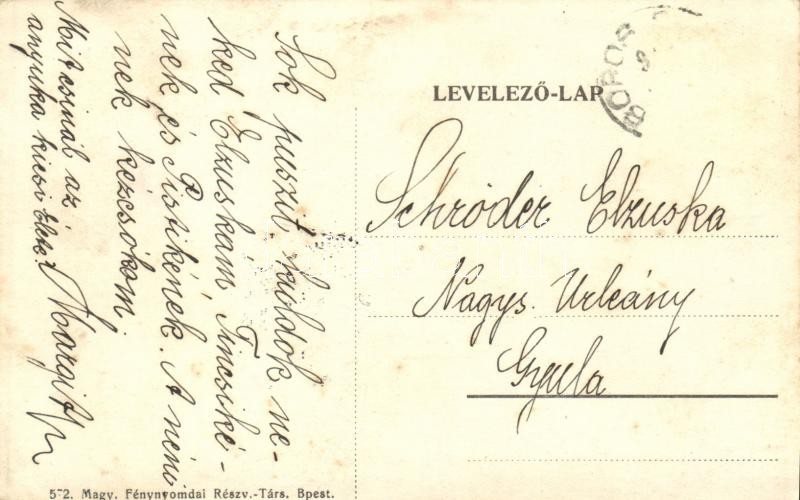 Sok puszit küldök ne-
ked Elzuskám, Tincsiké-
nek és Pistikének. A néni
nek kézcsókom
Mit csinál az
anyuka kicsi Elze?
Margit
LEVELEZŐ-LAP
BOROS
Schröder Elzuska
Nagys. Urleány
Gyula
5-2. Magy. Fénynyomdai Részv.-Társ. Bpest.